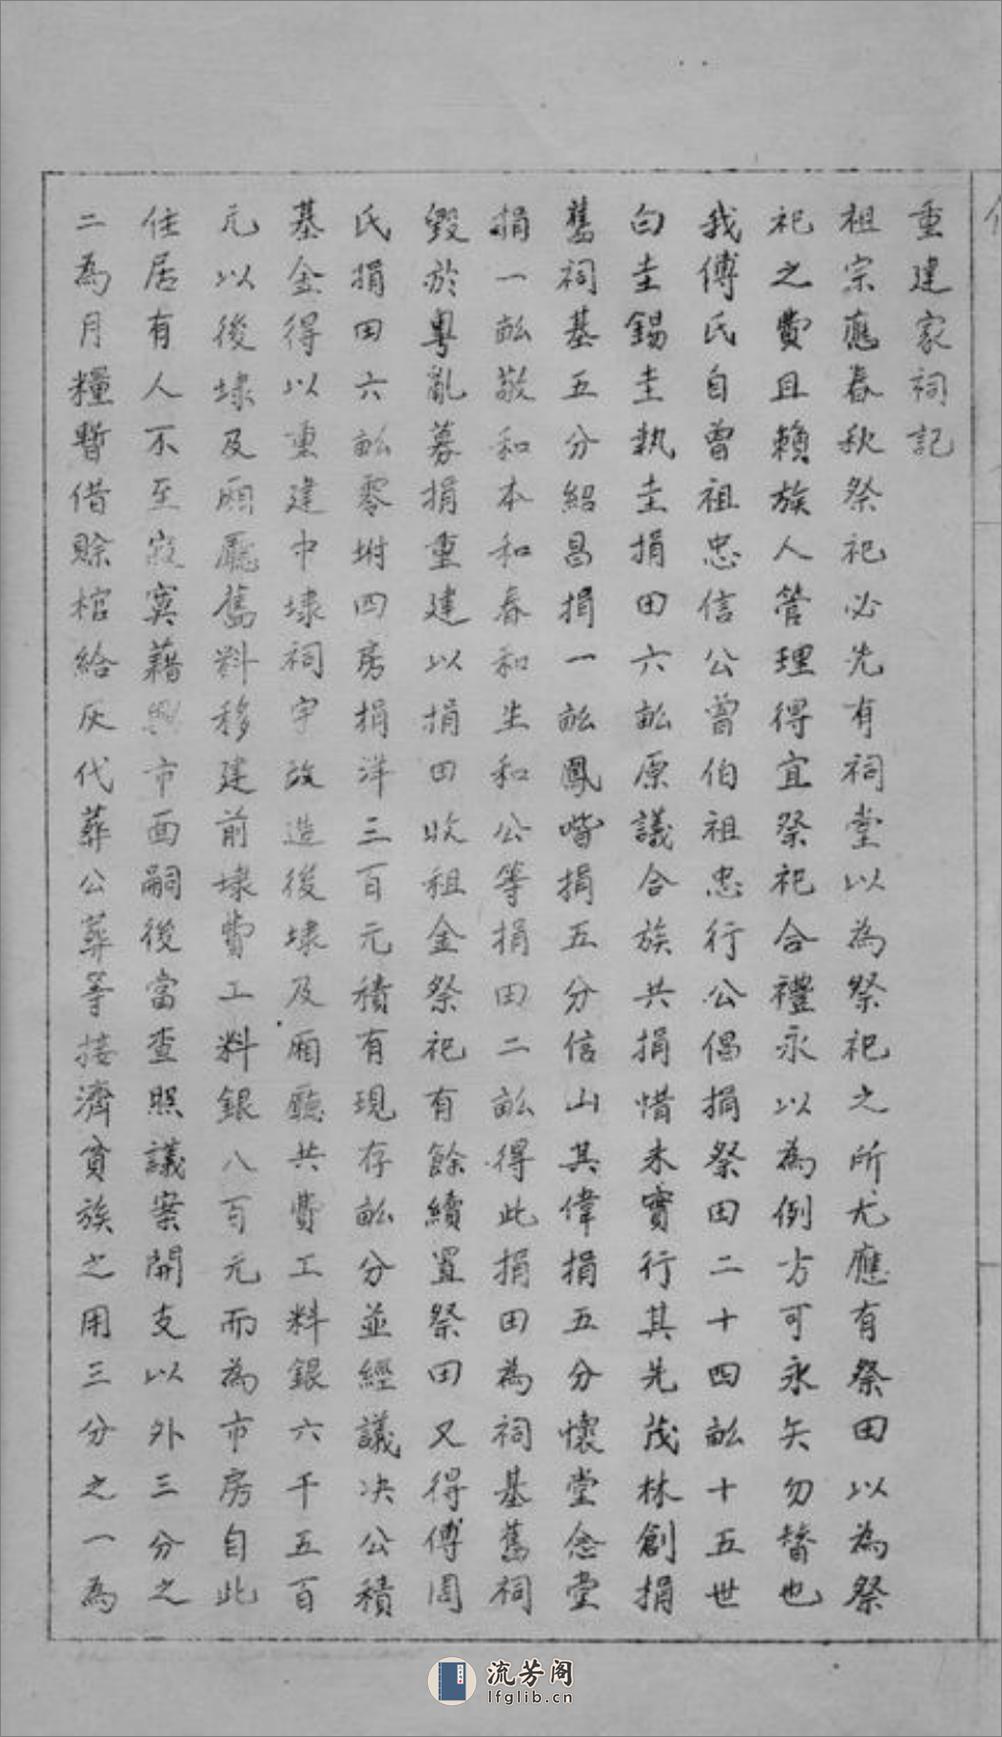 重建家祠記
祖宗應春秋祭祀必先有祠堂以為祭祀之所尤應有祭田以為祭
祀之費且賴族人管理得宜祭祀合禮永以為例方可永矢勿替也
我傅氏自曾祖忠信公曾伯祖忠行公倡捐祭田二十四畝十五世
白圭錫圭執圭捐田六畝原議合族共捐惜未實行其先茂林創捐
舊祠基五分紹昌捐一畝鳳喈捐五分信山其偉捐五分懷堂念堂
捐一畝敬和本和春和生和公等捐田二畝得此捐田為祠基舊祠
毀於粤亂募捐重建以捐田收租金祭祀有餘續置祭田又得傅周
氏捐田六畝零坿四房捐洋三百元積有現存畝分並經議决公積
基金得以重建中埭祠宇改造後埭及廂廳共費工料銀六千五百
元以後埭及廂廳舊料移建前埭費工料銀八百元而為市房自此
住居有人不至寂寞藉興市面嗣後當查照議案開支以外三分之
二為月糧暫借賒棺給灰代葬公葬等接濟貧族之用三分之一為
流芳阁
lfglib.cn